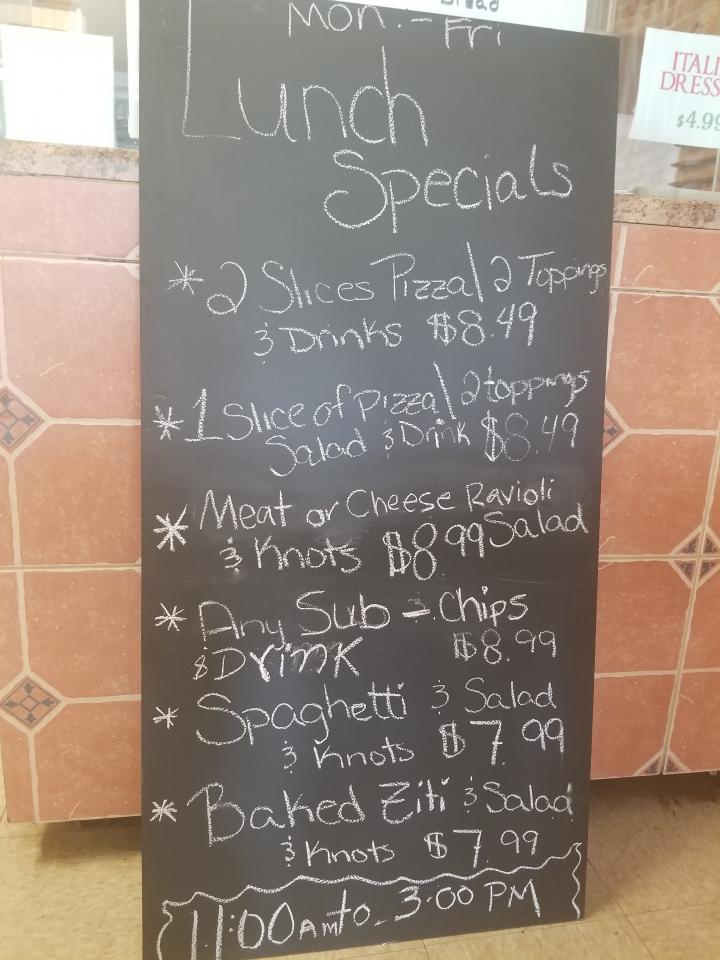 Mon. - Fri
Lunch
Specials
* 2 Slices Pizza / 2 Toppings
& Drinks $8.49
* 1 Slice of pizza / 2 toppings
Salad & Drink $8.49
* Meat or Cheese Ravioli
& Knots $8.99 Salad
* Any Sub - Chips
& Drink $8.99
* Spaghetti & Salad
& Knots $7.99
* Baked Ziti & Salad
& Knots $7.99
11:00 AM to - 3:00 PM
ITALI
DRESS
$4.99